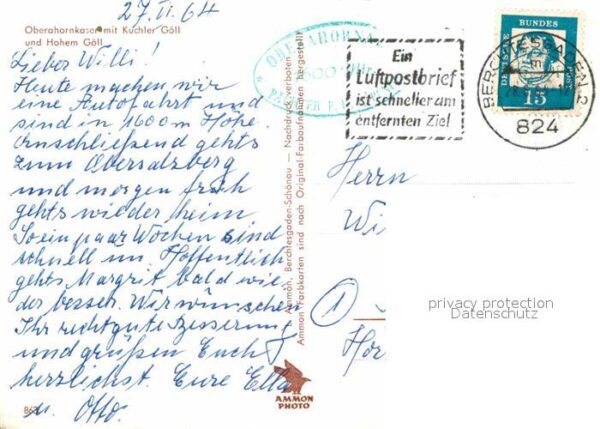 27.II.64
Oberahornkaser mit Kuchler Göll
und Hohem Göll
Lieber Willi!
Heute machen wir
eine Autofahrt und
sind in 1600 m Höhe.
Anschließend gehts
zum Obersalzberg
und morgen früh
gehts wieder heim
So ein paar Wochen sind
schnell um. Hoffentlich
gehts Margrit bald wie-
der besser. Wir wünschen
Ihr recht gute Besserung
und grüßen Euch
herzlichst. Eure Ella
u. Otto.
Ammon, Berchtesgaden-Schönau — Nachdruck verboten
Ammon Farbkarten sind nach Original-Farbaufnahmen hergestellt
AMMON
PHOTO
OBERAHORN
1600
Ein
Luftpostbrief
ist schneller am
entfernten Ziel
DEUTSCHE BUNDESPOST
15
BERCHTESGADEN 2
824
Herrn
Wi
1
Hor
privacy protection
Datenschutz